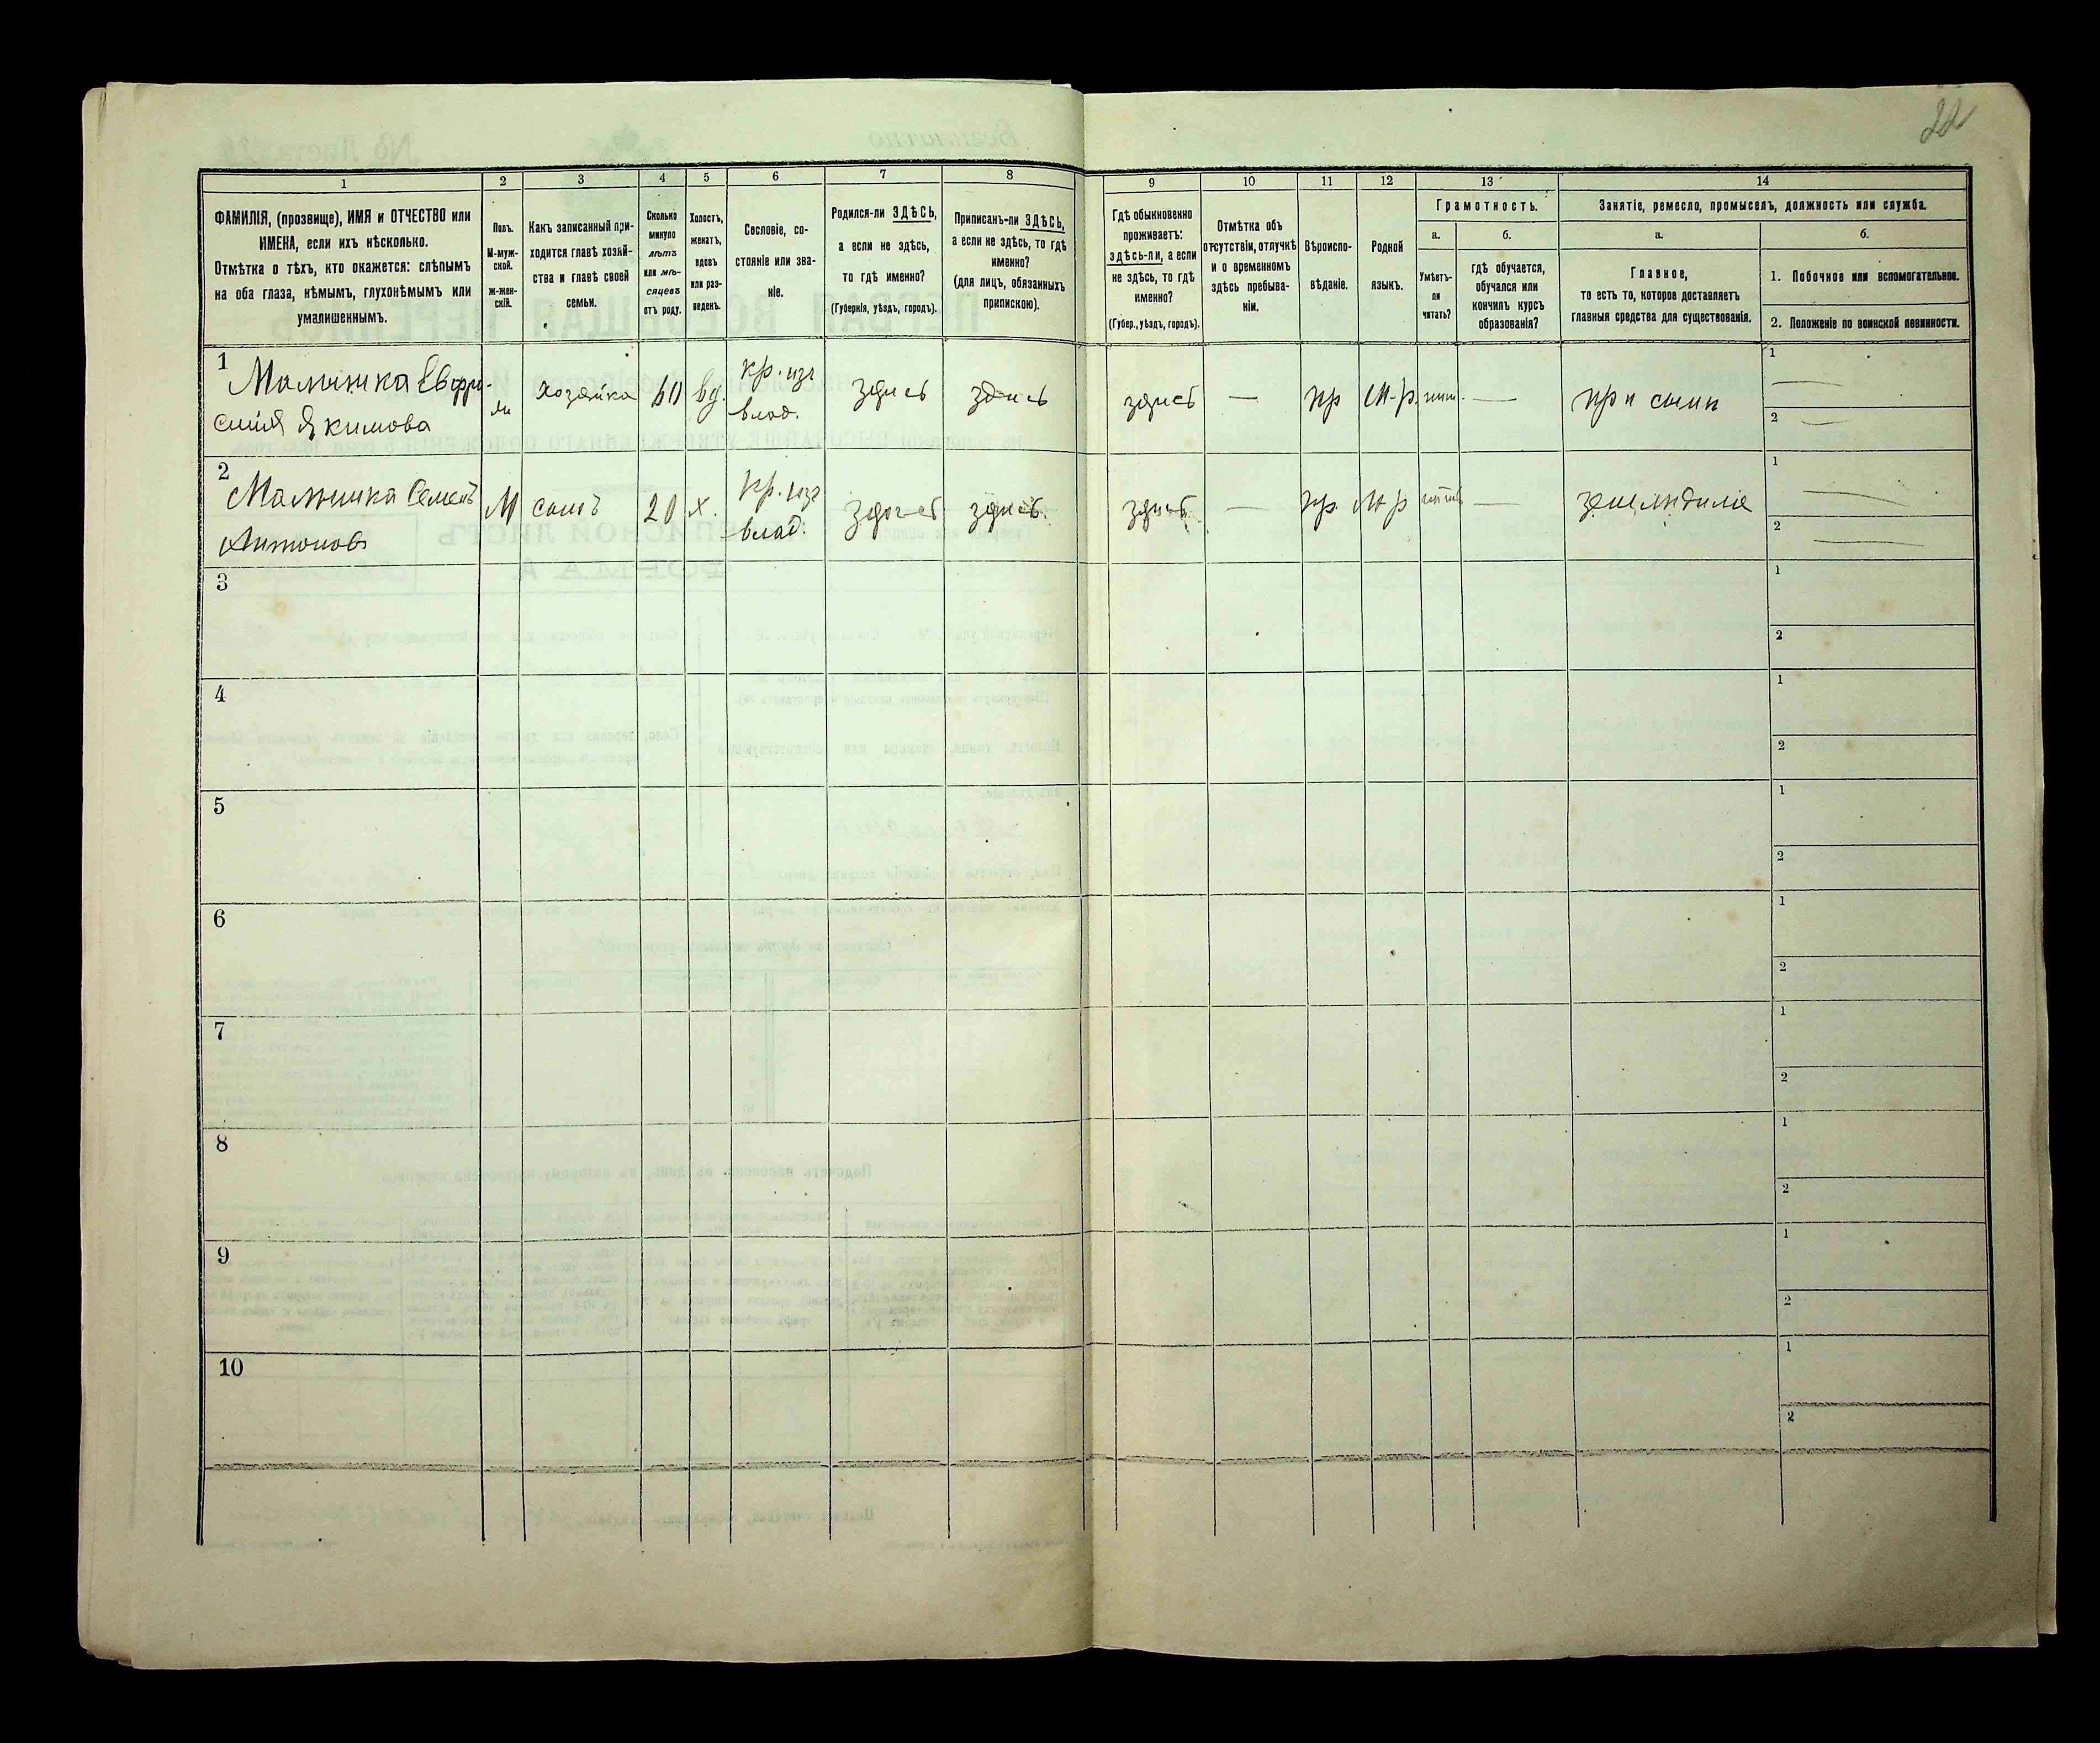 22
1 2 3 4 5 6 7 8 9 10 11 12 13 14
ФАМИЛІЯ, (прозвище), ИМЯ и ОТЧЕСТВО или
ИМЕНА, если ихъ нѣсколько.
Отмѣтка о тѣхъ, кто окажется: слѣпымъ
на оба глаза, нѣмымъ, глухонѣмымъ или
умалишеннымъ.
Полъ.
М-муж-
ской.
Ж-жен-
скій.
Какъ записанный при-
ходится главѣ хозяй-
ства и главѣ своей
семьи.
Сколько
минуло
лѣтъ
или мѣ-
сяцевъ
отъ роду.
Холостъ,
женатъ,
вдовъ
или раз-
веденъ.
Сословіе, со-
стояніе или зва-
ніе.
Родился-ли ЗДѢСЬ,
а если не здѣсь,
то гдѣ именно?
(Губернія, уѣздъ, городъ).
Приписанъ-ли ЗДѢСЬ,
а если не здѣсь, то гдѣ
именно?
(для лицъ, обязанныхъ
припискою).
Гдѣ обыкновенно
проживаетъ:
здѣсь-ли, а если
не здѣсь, то гдѣ
именно?
(Губер., уѣздъ, городъ).
Отмѣтка объ
отсутствіи, отлучкѣ
и о временномъ
здѣсь пребыва-
ніи.
Вѣроиспо-
вѣданіе.
Родной
языкъ.
Грамотность.
а.
Умѣетъ-
ли
читать?
б.
гдѣ обучается,
обучался или
кончилъ курсъ
образованія?
Занятіе, ремесло, промыселъ, должность или служба.
а.
Главное,
то есть то, которое доставляетъ
главныя средства для существованія.
б.
1. Побочное или вспомогательное.
2. Положеніе по воинской повинности.
1
Хозяйка 60 вд. кр. изъ
влад.
здѣсь здѣсь здѣсь — пр М-р. — при сынѣ
1 —
2 —
Якимова
2
Семенъ М сынъ 20 х. кр. изъ
влад.
здѣсь здѣсь здѣсь — пр. М р — земледѣліе
1 —
2 —
Антоновъ
3
1
2
4
1
2
5
1
2
6
1
2
7
1
2
8
1
2
9
1
2
10
1
2